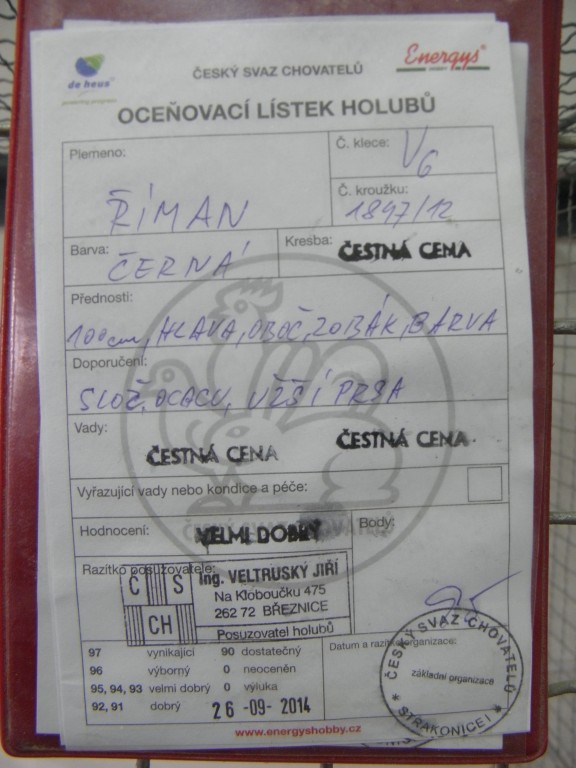 de heus
ČESKÝ SVAZ CHOVATELŮ
Energys®
OCEŇOVACÍ LÍSTEK HOLUBŮ
Plemeno:
ŘÍMAN
Č. klece: V6
Č. kroužku:
1847/12
Barva:
ČERNÁ
Kresba: ČESTNÁ CENA
Přednosti:
100cm, HLAVA, OBOČ, ZOBÁK, BARVA
Doporučení:
SLOŽ. OCACU, UŽŠÍ PRSA
Vady:
ČESTNÁ CENA ČESTNÁ CENA
Vyřazující vady nebo kondice a péče:
ČESKÝ SVAZ CHOVATELŮ
Hodnocení: VELMI DOBRÝ
Body:
95
Razítko posuzovatele:
Č S
CH
Ing. VELTRUSKÝ JIŘÍ
Na Kloboučku 475
262 72 BŘEZNICE
Posuzovatel holubů
97 vynikající 90 dostatečný
96 výborný 0 neoceněn
95, 94, 93 velmi dobrý 0 výluka
92, 91 dobrý
26 -09- 2014
Datum a razítko organizace:
ČESKÝ SVAZ CHOVATELŮ
základní organizace
STRAKONICE I
www.energyshobby.cz